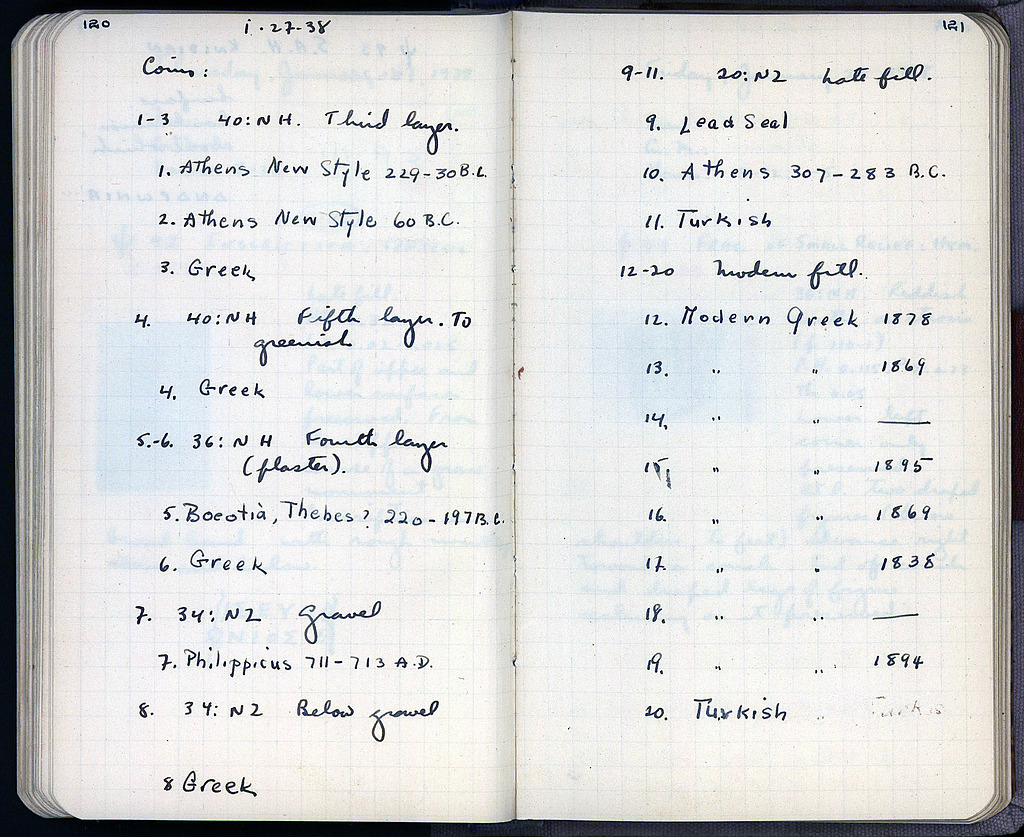 120
1.27-38
Coins:
1-3 40:NH. Third layer.
1. Athens New Style 229-30 B.C.
2. Athens New Style 60 B.C.
3. Greek
4. 40:NH Fifth layer. To
greenish
4. Greek
5.-6. 36:NH Fourth layer
(plaster).
5. Boeotia, Thebes? 220-197 B.C.
6. Greek
7. 34:NZ Gravel
7. Philippicus 711-713 A.D.
8. 34:NZ Below gravel
8 Greek
121
9-11. 20:NZ Late fill.
9. Lead Seal
10. Athens 307-283 B.C.
11. Turkish
12-20 Modern fill.
12. Modern Greek 1878
13. " " 1869
14. " " —
15. " " 1895
16. " " 1869
17. " " 1838
18. " " —
19. " " 1894
20. Turkish